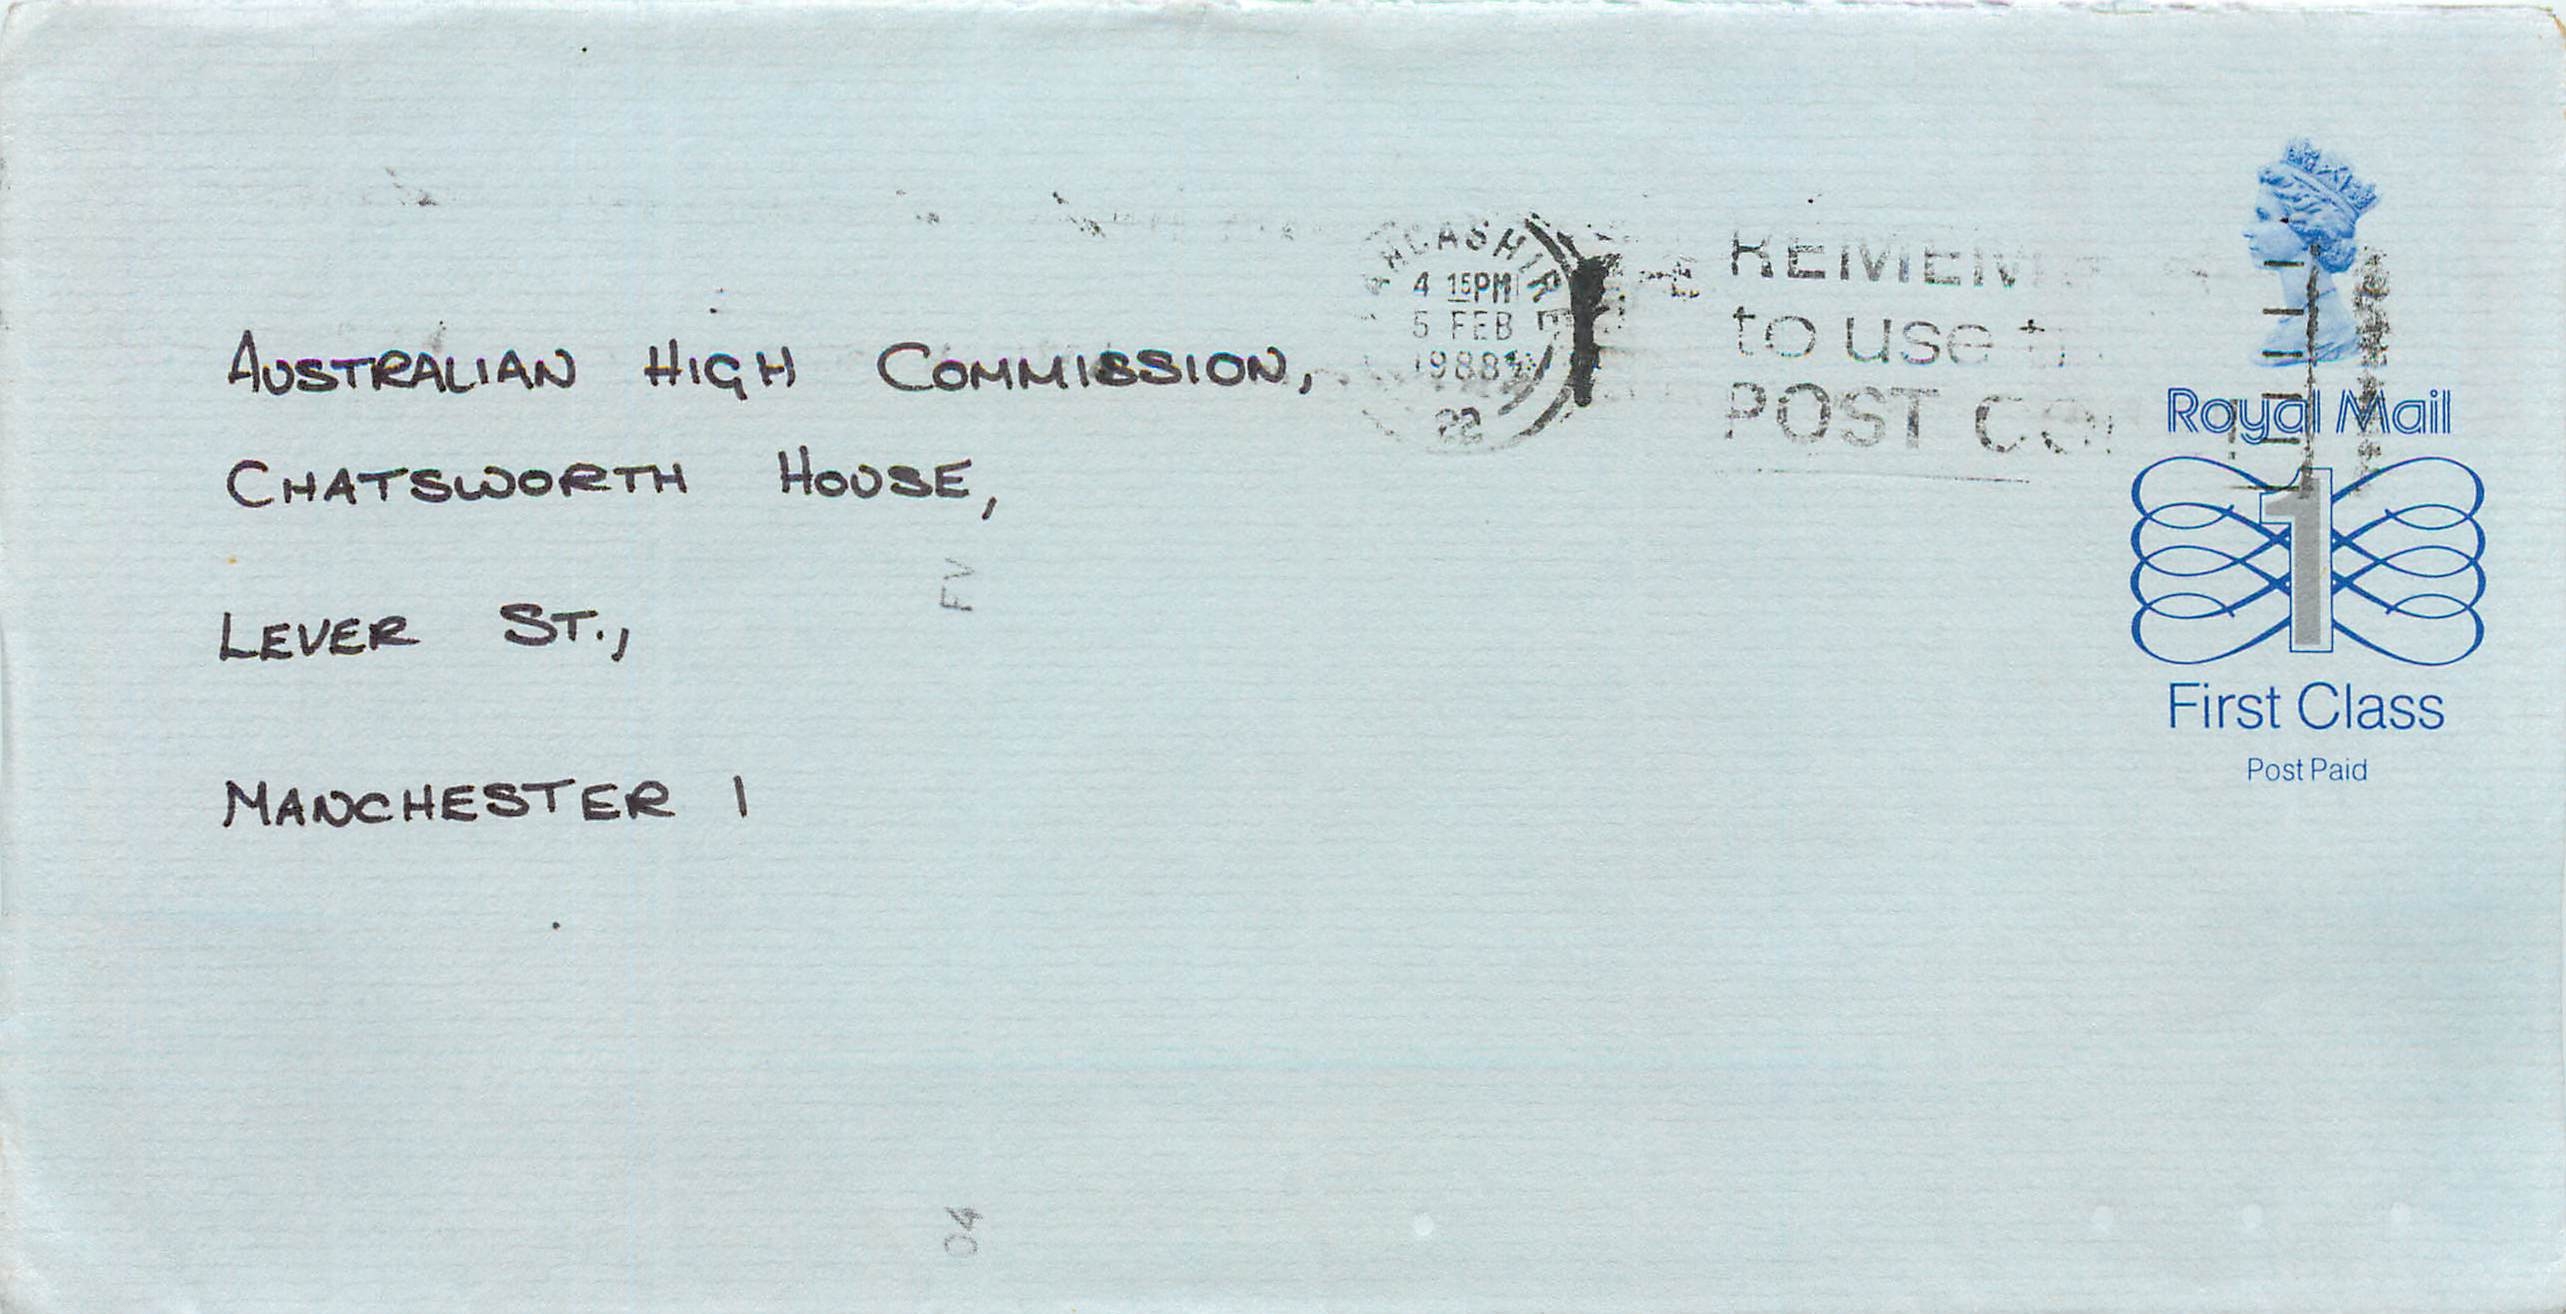 AUSTRALIAN HIGH COMMISSION,
CHATSWORTH HOUSE,
LEVER ST.,
MANCHESTER 1
LANCASHIRE
4 15PM
5 FEB
1988
22
REMEM
to use t
POST CO
Royal Mail
1
First Class
Post Paid
FV
04